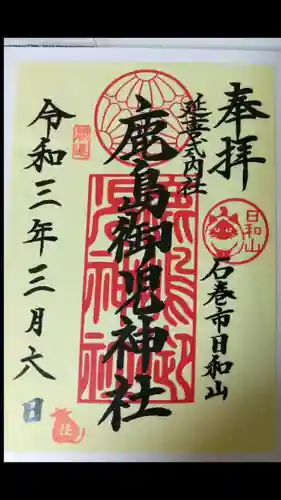 奉拝
延喜式内社
日和山
石巻市日和山
鹿島御児神社
令和三年三月六日